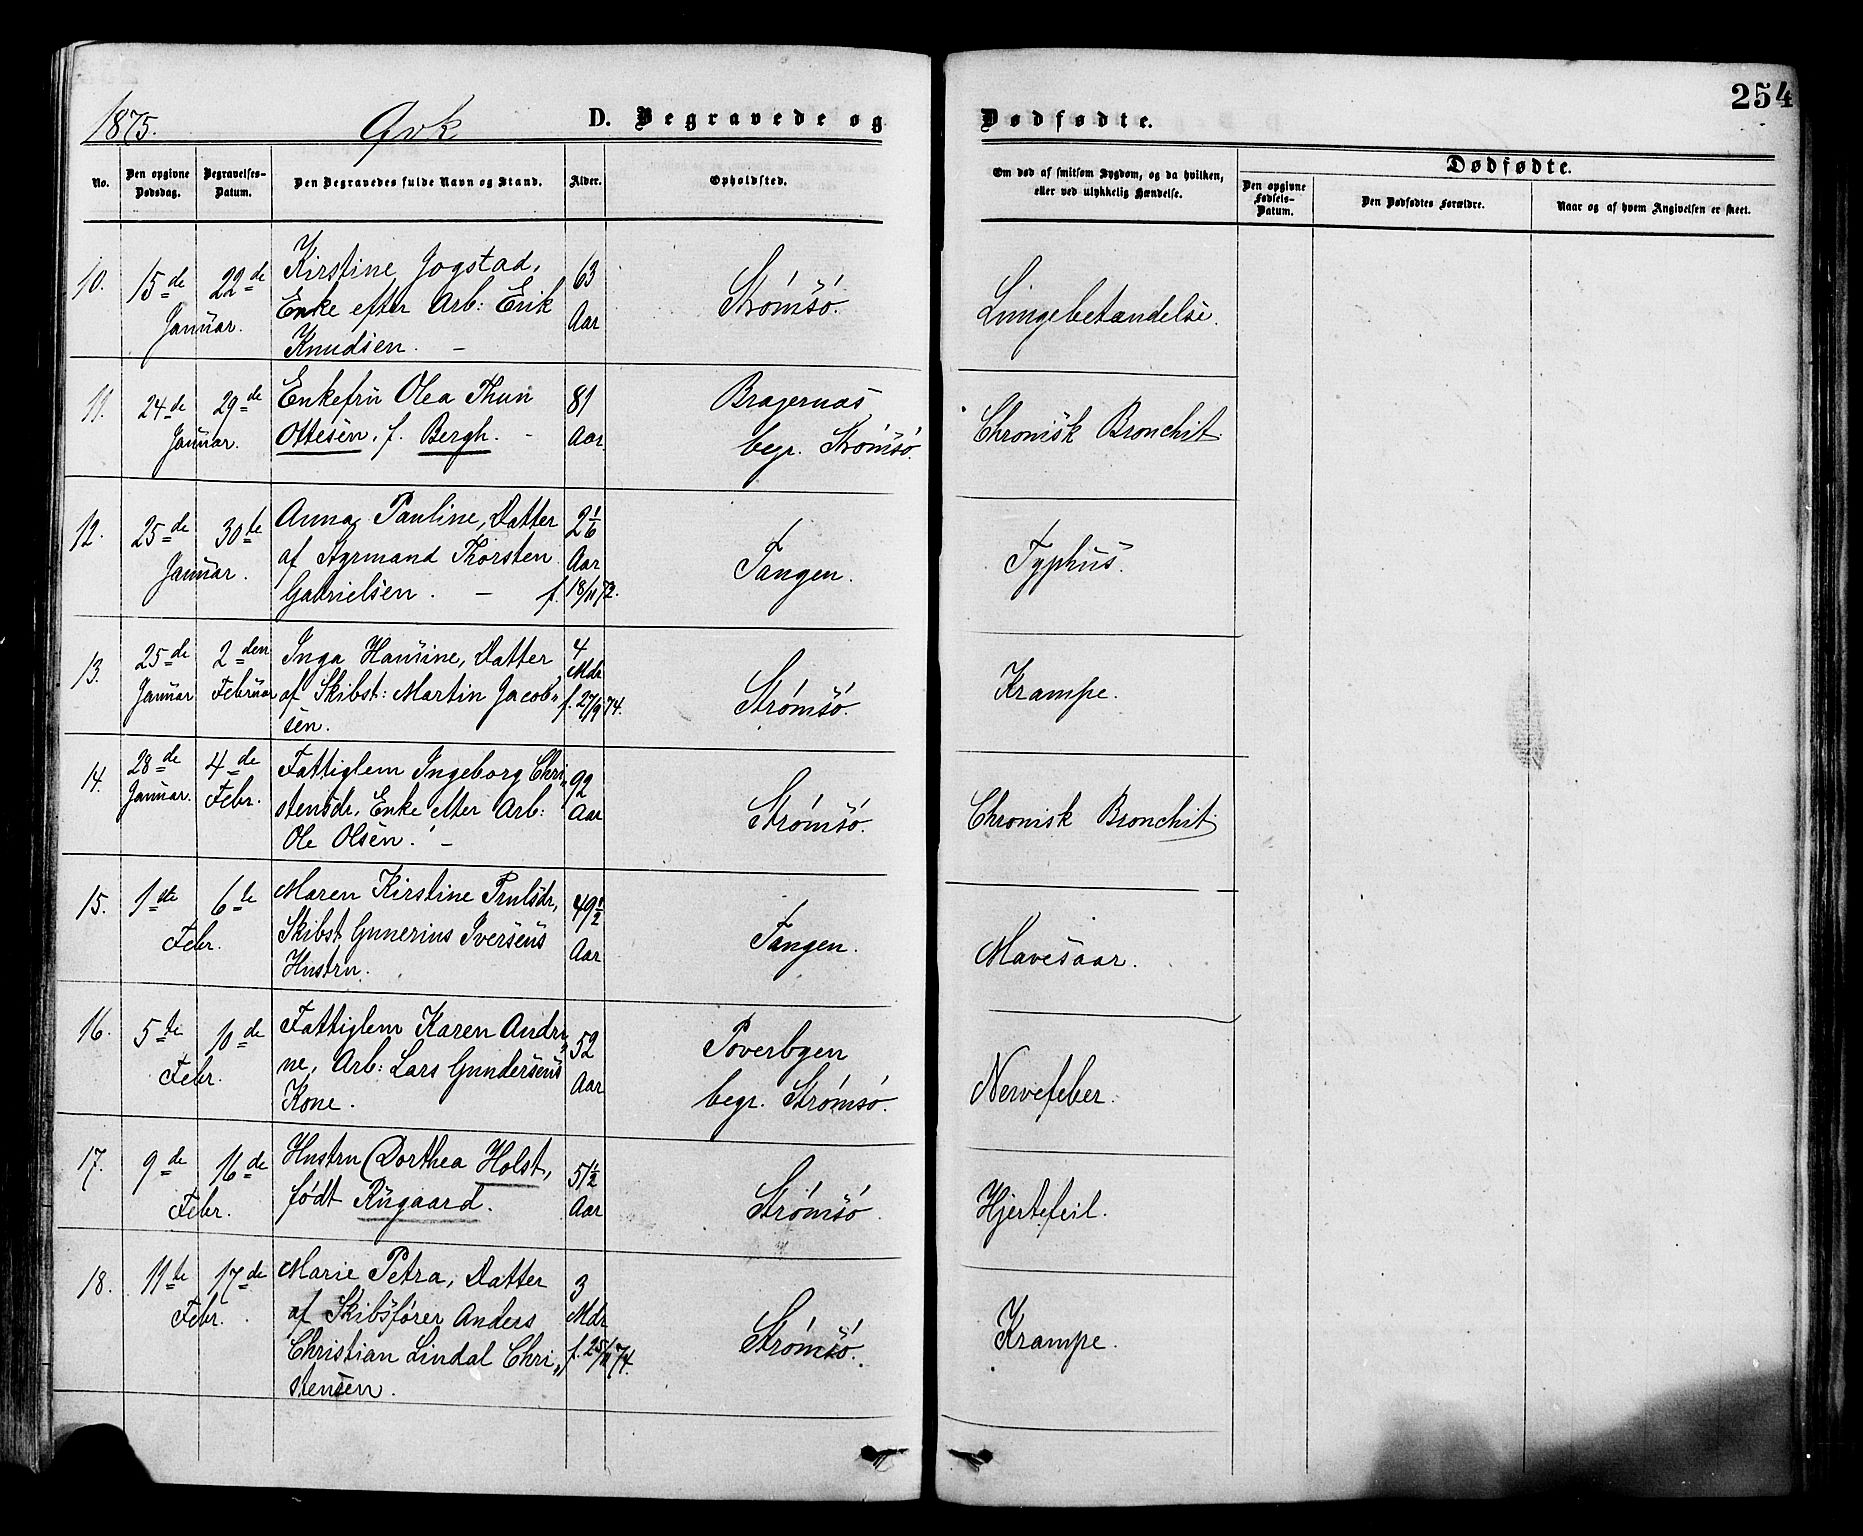 254
1875.
Qvk
D. Begravede og Dødfødte.
No.
Den opgivne Dødsdag.
Begravelses-Datum.
Den Begravedes fulde Navn og Stand.
Alder.
Opholdsted.
Om død af smitsom Sygdom, og da hvilken, eller ved ulykkelig Hændelse.
Dødfødte.
Den opgivne Fødsels-Datum.
Den Dødfødtes Forældre.
Naar og af hvem Angivelsen er skeet.
10. 15de Januar. 22de
Kirstine Jogstad,
Enke efter Arb: Erik
Knudsen. –
63 Aar
Strømsö.
Lungebetændelse.
11. 24de Januar. 29de
Enkefru Olea Thun
Ottesen, f. Bergh. –
81 Aar
Bragernæs
begr. Strømsö.
Chronisk Bronchit.
12. 25de Januar. 30te
Anna Pauline, Datter
af Styrmand Thorsten
Gabrielsen. – f. 18/11 72.
2 1/6 Aar
Tangen.
Typhus.
13. 25de Januar 2den Februar
Inga Hansine, Datter
af Skibst: Martin Jacob„
sen.
4 Mdr
f. 27/9 74.
Strømsö.
Krampe.
14. 28de Januar. 4de Febr.
Fattiglem Ingeborg Chri„
stensdr, Enke efter Arb:
Ole Olsen. –
92 Aar
Strømsö.
Chronisk Bronchit.
15. 1ste Febr. 6te
Maren Kirstine Paulsdr,
Skibst Gunerius Iversens
Hustru.
49 1/2 Aar
Tangen.
Mavesaar.
16. 5te Febr. 10de
Fattiglem Karen Andri„
ne, Arb: Lars Gundersens
Kone.
52 Aar
Poverbyen
begr. Strømsö.
Nervefeber.
17. 9de Febr. 16de
Hustru Dorthea Holst,
født Rügaard.
51 1/2 Aar
Strømsö.
Hjertefeil.
18. 11te Febr. 17de
Marie Petra, Datter
af Skibsfører Anders
Christian Lindal Chri„
stensen.
3 Mdr
f. 25/11 74.
Strømsö.
Krampe.